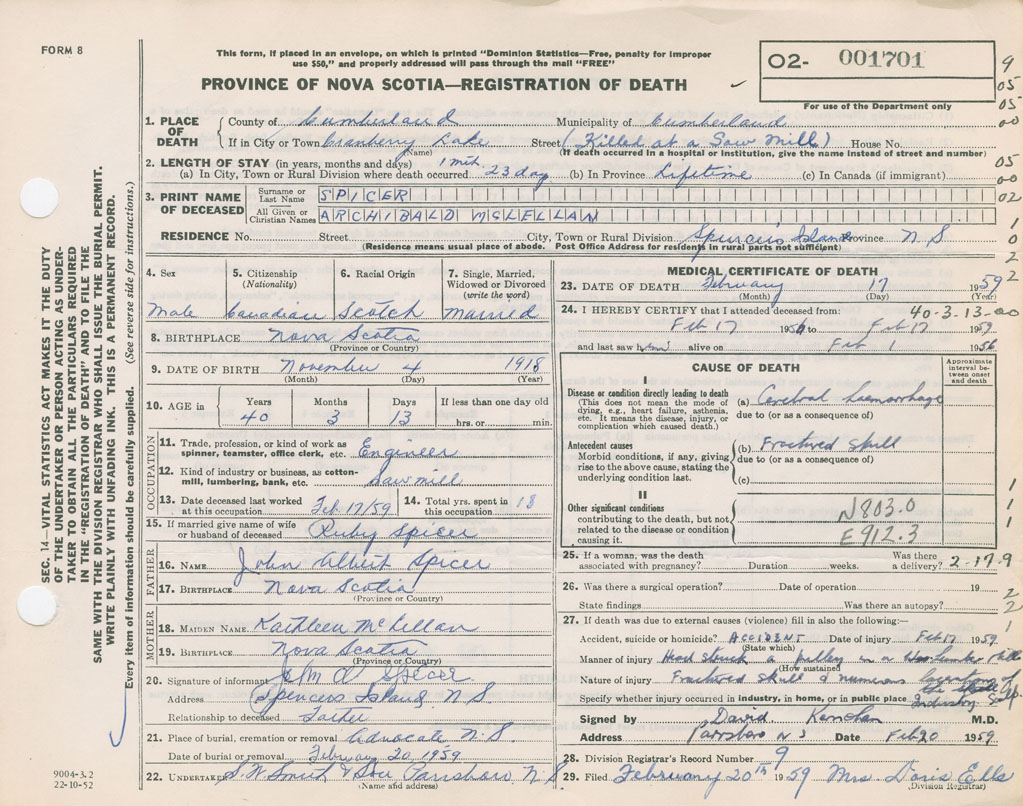 FORM 8
This form, if placed in an envelope, on which is printed "Dominion Statistics—Free, penalty for improper
use $50," and properly addressed will pass through the mail "FREE"
PROVINCE OF NOVA SCOTIA—REGISTRATION OF DEATH
O2- 001701
For use of the Department only
9
05
05
00
05
00
02
1
0
2
2
SEC. 14—VITAL STATISTICS ACT MAKES IT THE DUTY
OF THE UNDERTAKER OR PERSON ACTING AS UNDER-
TAKER TO OBTAIN ALL THE PARTICULARS REQUIRED
IN THE "REGISTRATION OF DEATH" AND TO FILE THE
SAME WITH THE DIVISION REGISTRAR WHO SHALL ISSUE THE BURIAL PERMIT.
WRITE PLAINLY WITH UNFADING INK. THIS IS A PERMANENT RECORD.
Every item of information should be carefully supplied. (See reverse side for instructions.)
1. PLACE OF DEATH
County of Cumberland Municipality of Cumberland
If in City or Town Cranberry Lake Street (Killed at a Saw Mill) House No.
(Name) (If death occurred in a hospital or institution, give the name instead of street and number)
2. LENGTH OF STAY (in years, months and days) 1 mth
(a) In City, Town or Rural Division where death occurred 23 day (b) In Province Lifetime (c) In Canada (if immigrant)
3. PRINT NAME OF DECEASED
Surname or Last Name SPICER
All Given or Christian Names ARCHIBALD McLELLAN
RESIDENCE No. Street City, Town or Rural Division Spencers Island Province N.S.
(Residence means usual place of abode. Post Office Address for residents in rural parts not sufficient)
4. Sex 5. Citizenship (Nationality) 6. Racial Origin 7. Single, Married, Widowed or Divorced (write the word)
Male Canadian Scotch Married
8. BIRTHPLACE Nova Scotia
(Province or Country)
9. DATE OF BIRTH November 4 1918
(Month) (Day) (Year)
10. AGE in Years Months Days If less than one day old
40 3 13 hrs. or min.
OCCUPATION
11. Trade, profession, or kind of work as
spinner, teamster, office clerk, etc. Engineer
12. Kind of industry or business, as cotton-
mill, lumbering, bank, etc. Saw mill
13. Date deceased last worked at this occupation Feb. 17/59 14. Total yrs. spent in this occupation 18
15. If married give name of wife
or husband of deceased Ruby Spicer
FATHER
16. NAME John Albert Spicer
17. BIRTHPLACE Nova Scotia
(Province or Country)
MOTHER
18. MAIDEN NAME Kathleen McLellan
19. BIRTHPLACE Nova Scotia
(Province or Country)
20. Signature of informant John A Spicer
Address Spencers Island N.S.
Relationship to deceased Father
21. Place of burial, cremation or removal Advocate N.S.
Date of burial or removal February 20, 1959
22. UNDERTAKER Smith & Son Parrsboro N.S.
(Name and address)
9004-3.2
22-10-52
MEDICAL CERTIFICATE OF DEATH
23. DATE OF DEATH February 17 1959
(Month) (Day) (Year)
2
24. I HEREBY CERTIFY that I attended deceased from: 40-3-13-00
Feb 17 to Feb 17 1959
and last saw h alive on Feb 1 1956
CAUSE OF DEATH
Approximate interval between onset and death
I
Disease or condition directly leading to death
(This does not mean the mode of
dying, e.g., heart failure, asthenia,
etc. It means the disease, injury, or
complication which caused death.)
(a) Cerebral haemorrhage
due to (or as a consequence of)
Antecedent causes
Morbid conditions, if any, giving
rise to the above cause, stating the
underlying condition last.
(b) Fractured skull
due to (or as a consequence of)
(c)
II
Other significant conditions
contributing to the death, but not
related to the disease or condition
causing it.
N803.0
E912.3
1
1
1
25. If a woman, was the death
associated with pregnancy? Duration weeks. Was there a delivery? 2-17-9
26. Was there a surgical operation? Date of operation 19
State findings Was there an autopsy?
2
2
1
27. If death was due to external causes (violence) fill in also the following:—
Accident, suicide or homicide? ACCIDENT Date of injury Feb 17 1959
(State which)
Manner of injury Head struck a pulley in a
(How sustained)
Nature of injury Fractured skull & numerous of
the Scalp
Specify whether injury occurred in industry, in home, or in public place Industry
Signed by David M.D.
Address Parrsboro N S Date Feb 20 1959
28. Division Registrar's Record Number 9
29. Filed February 20th 1959 Mrs. Doris Ells
(Division Registrar)